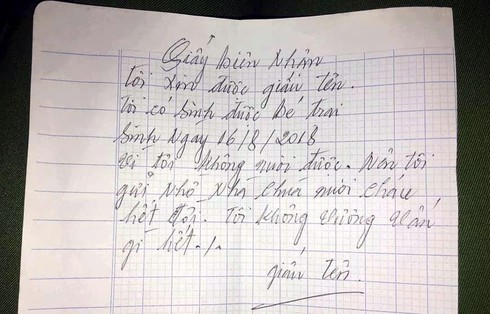 Giấy biên Nhận
Tôi xin được giấu tên.
Tôi có sinh được Bé trai
Sinh Ngày 16/8/2018
Vì tôi không nuôi được. Nên tôi
gửi Nhờ Nhà chùa nuôi cháu
hết đời. Tôi không vướng
gì hết./.
giấu tên.